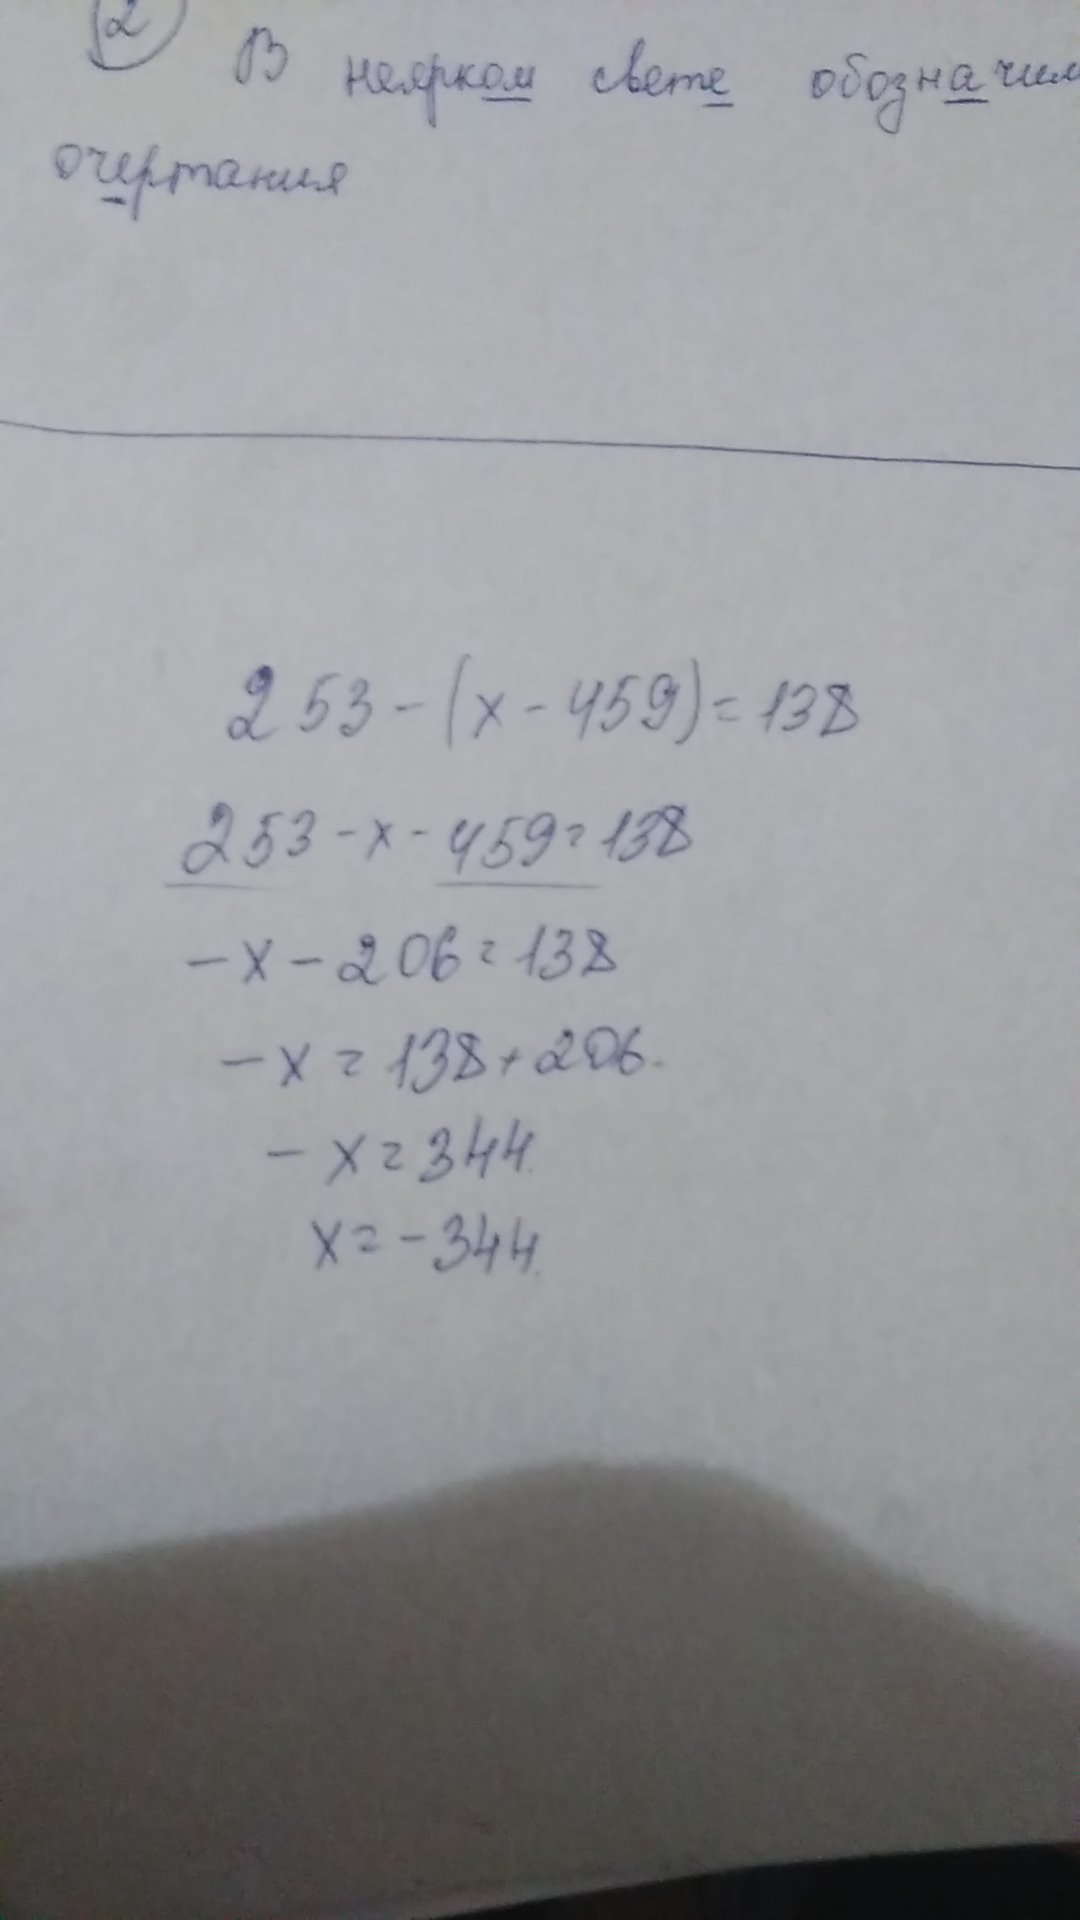 2
В неярком свете обозначил
очертания
253 - (x - 459) = 138
253 - x - 459 = 138
- x - 206 = 138
- x = 138 + 206.
- x = 344.
x = - 344.